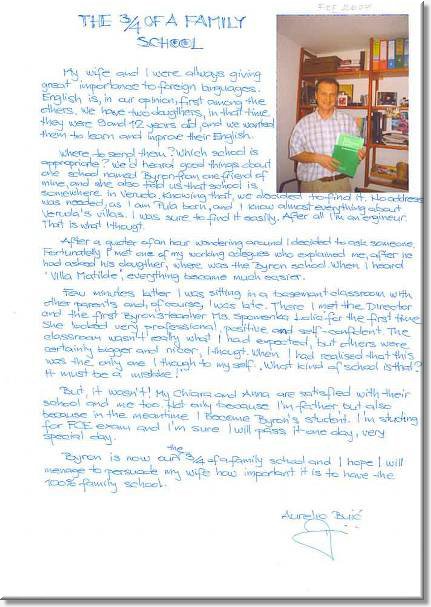 THE 3/4 OF A FAMILY
SCHOOL
FCE 2007
My wife and I were always giving
great importance to foreign languages.
English is, in our opinion, first among the
others. We have two daugthers, in that time
they were 9 and 12 years old, and we wanted
them to learn and improve their English.
Where to send them? Which school is
appropriate? We'd heard good things about
one school named Byron from one friend of
mine, and she also told us that school is
somewhere in Veruda. Knowing that, we decided to find it. No address
was needed, as I am Pula born, and I know almost everything about
Veruda's villas. I was sure to find it easily. After all I'm an engineur.
That is what I thougt.
After a quoter of an hour wondering around I decided to ask someone.
Fortunatelly I met one of my working collegues who explained me, after he
had asked his daugther, where was the Byron school. When I heard
"Villa Matilde", everything became much easier.
Few minutes latter I was sitting in a basement classroom with
other parents and, of course, I was late. There I met the Director
and the first Byron's teacher Mrs. Spomenka Lalić for the first time
She looked very professional, positive and self-confident. The
classroom wasn't realty what I had expected, but others were
certainly bigger and nicer, I thougt. When I had realised that this
was the only one I thougth to my self "What kind of school is that?
It must be a mistake!"
But, it wasn't! My Chiara and Anna are satisfied with their
school and me too. Not only because I'm father but also
because in the meantime I became Byron's student. I'm studing
for FCE exam and I'm sure I will pass it one day, very
special day.
Byron is now our the 3/4 of a family school and I hope I will
menage to persuade my wife how important it is to have the
100% family school.
Aurelio